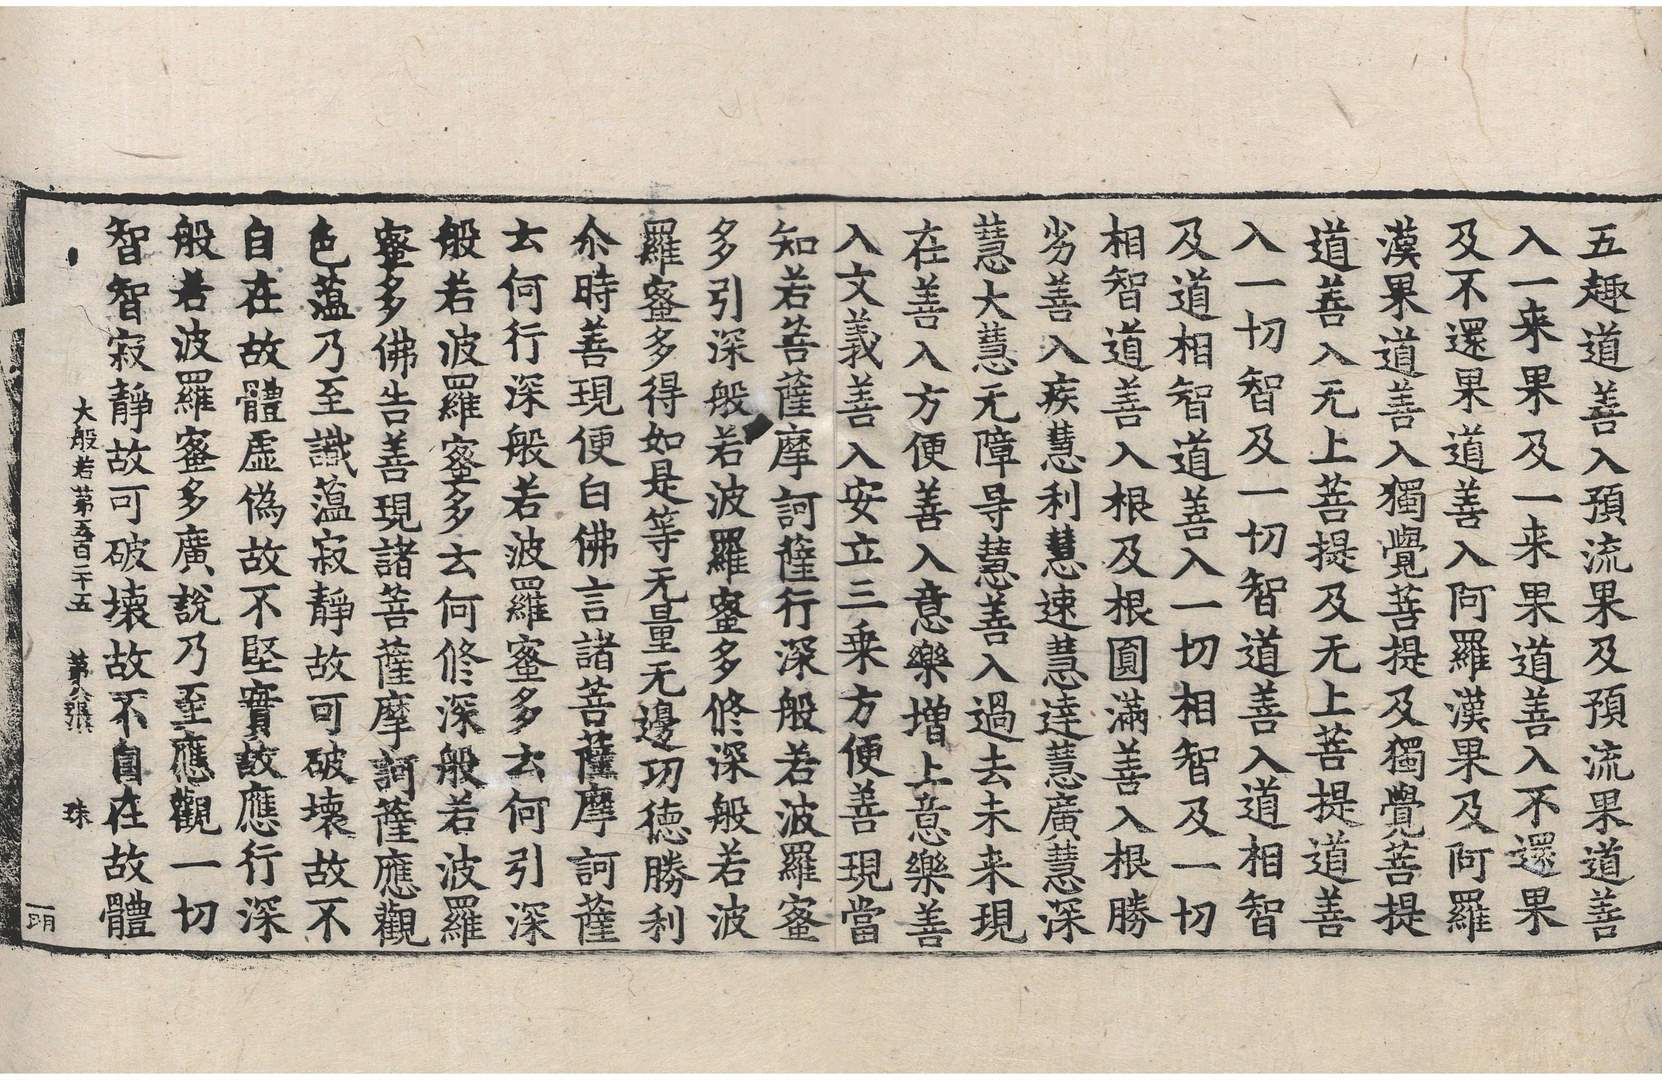 五趣道善入預流果及預流果道善
入一来果及一来果道善入不還果
及不還果道善入阿羅漢果及阿羅
漢果道善入獨覺菩提及獨覺菩提
道善入无上菩提及无上菩提道善
入一切智及一切智道善入道相智
及道相智道善入一切相智及一切
相智道善入根及根圓滿善入根勝
劣善入疾慧利慧速慧達慧廣慧深
慧大慧无障导慧善入過去未来現
在善入方便善入意樂增上意樂善
入文義善入安立三乗方便善現當
知若菩薩摩訶薩行深般若波羅蜜
多引深般若波羅蜜多修深般若波
羅蜜多得如是等无量无邊功德勝利
尒時善現便白佛言諸菩薩摩訶薩
云何行深般若波羅蜜多云何引深
般若波羅蜜多云何修深般若波羅
蜜多佛告善現諸菩薩摩訶薩應觀
色蕰乃至識蕰寂靜故可破壞故不
自在故體虛偽故不堅實故應行深
般若波羅蜜多廣說乃至應觀一切
智智寂靜故可破壞故不自在故體
大般若第五百二十五 第八張 珠